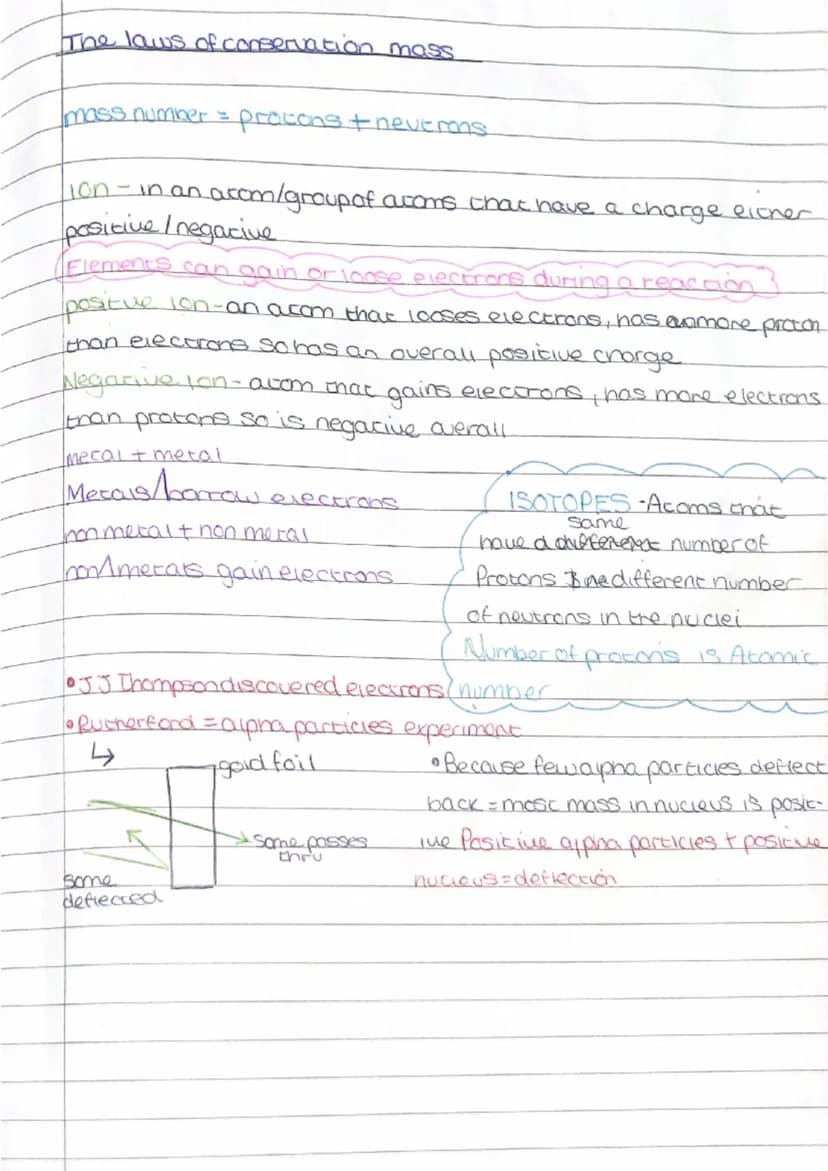 The laws of conservation mass
mass number = protons + neutrons
ion - in an atom/group of atoms that have a charge either
positive / negative
Elements can gain or loose electrons during a reaction
positive ion - an atom that looses electrons, has more proton
than electrons so has an overall positive charge
Negative ion - atom that gains electrons, has more electrons
than protons so is negative overall
metal + metal
Metals/borrow electrons
non metal + non metal
non/metals gain electrons
ISOTOPES - Atoms that
same
have a different number of
Protons different number
of neutrons in the nuclei
Number of protons is Atomic
number
• JJ Thompson discovered electrons
• Rutherford = alpha particles experiment
gold foil
some passes
thru
some
deflected
• Because few alpha particles deflect
back = most mass in nucleus is posit-
ive Positive alpha particles + positive
nucleus = deflection